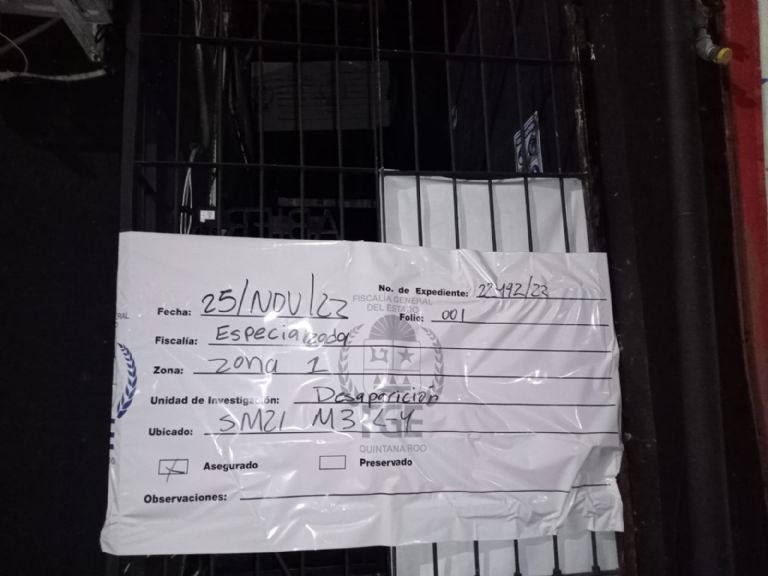 No. de Expediente: 22492/22
Fecha: 25/NOV/22
FISCALÍA GENERAL
DEL ESTADO
Folio: 001
Fiscalía: Especializada
Zona: Zona 1
Unidad de Investigación: Desaparición
Ubicado: SM21 M3 L-4
FGE
QUINTANA ROO
Asegurado
Preservado
Observaciones: